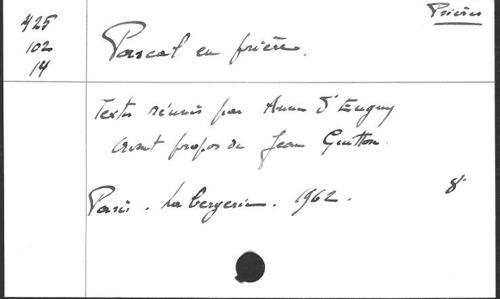 Prières
425
102
14
Pascal en prière.
Textes réunis par Anne d'Eugny
avant propos de Jean Guitton.
Paris. La bergerie. 1962. 8°